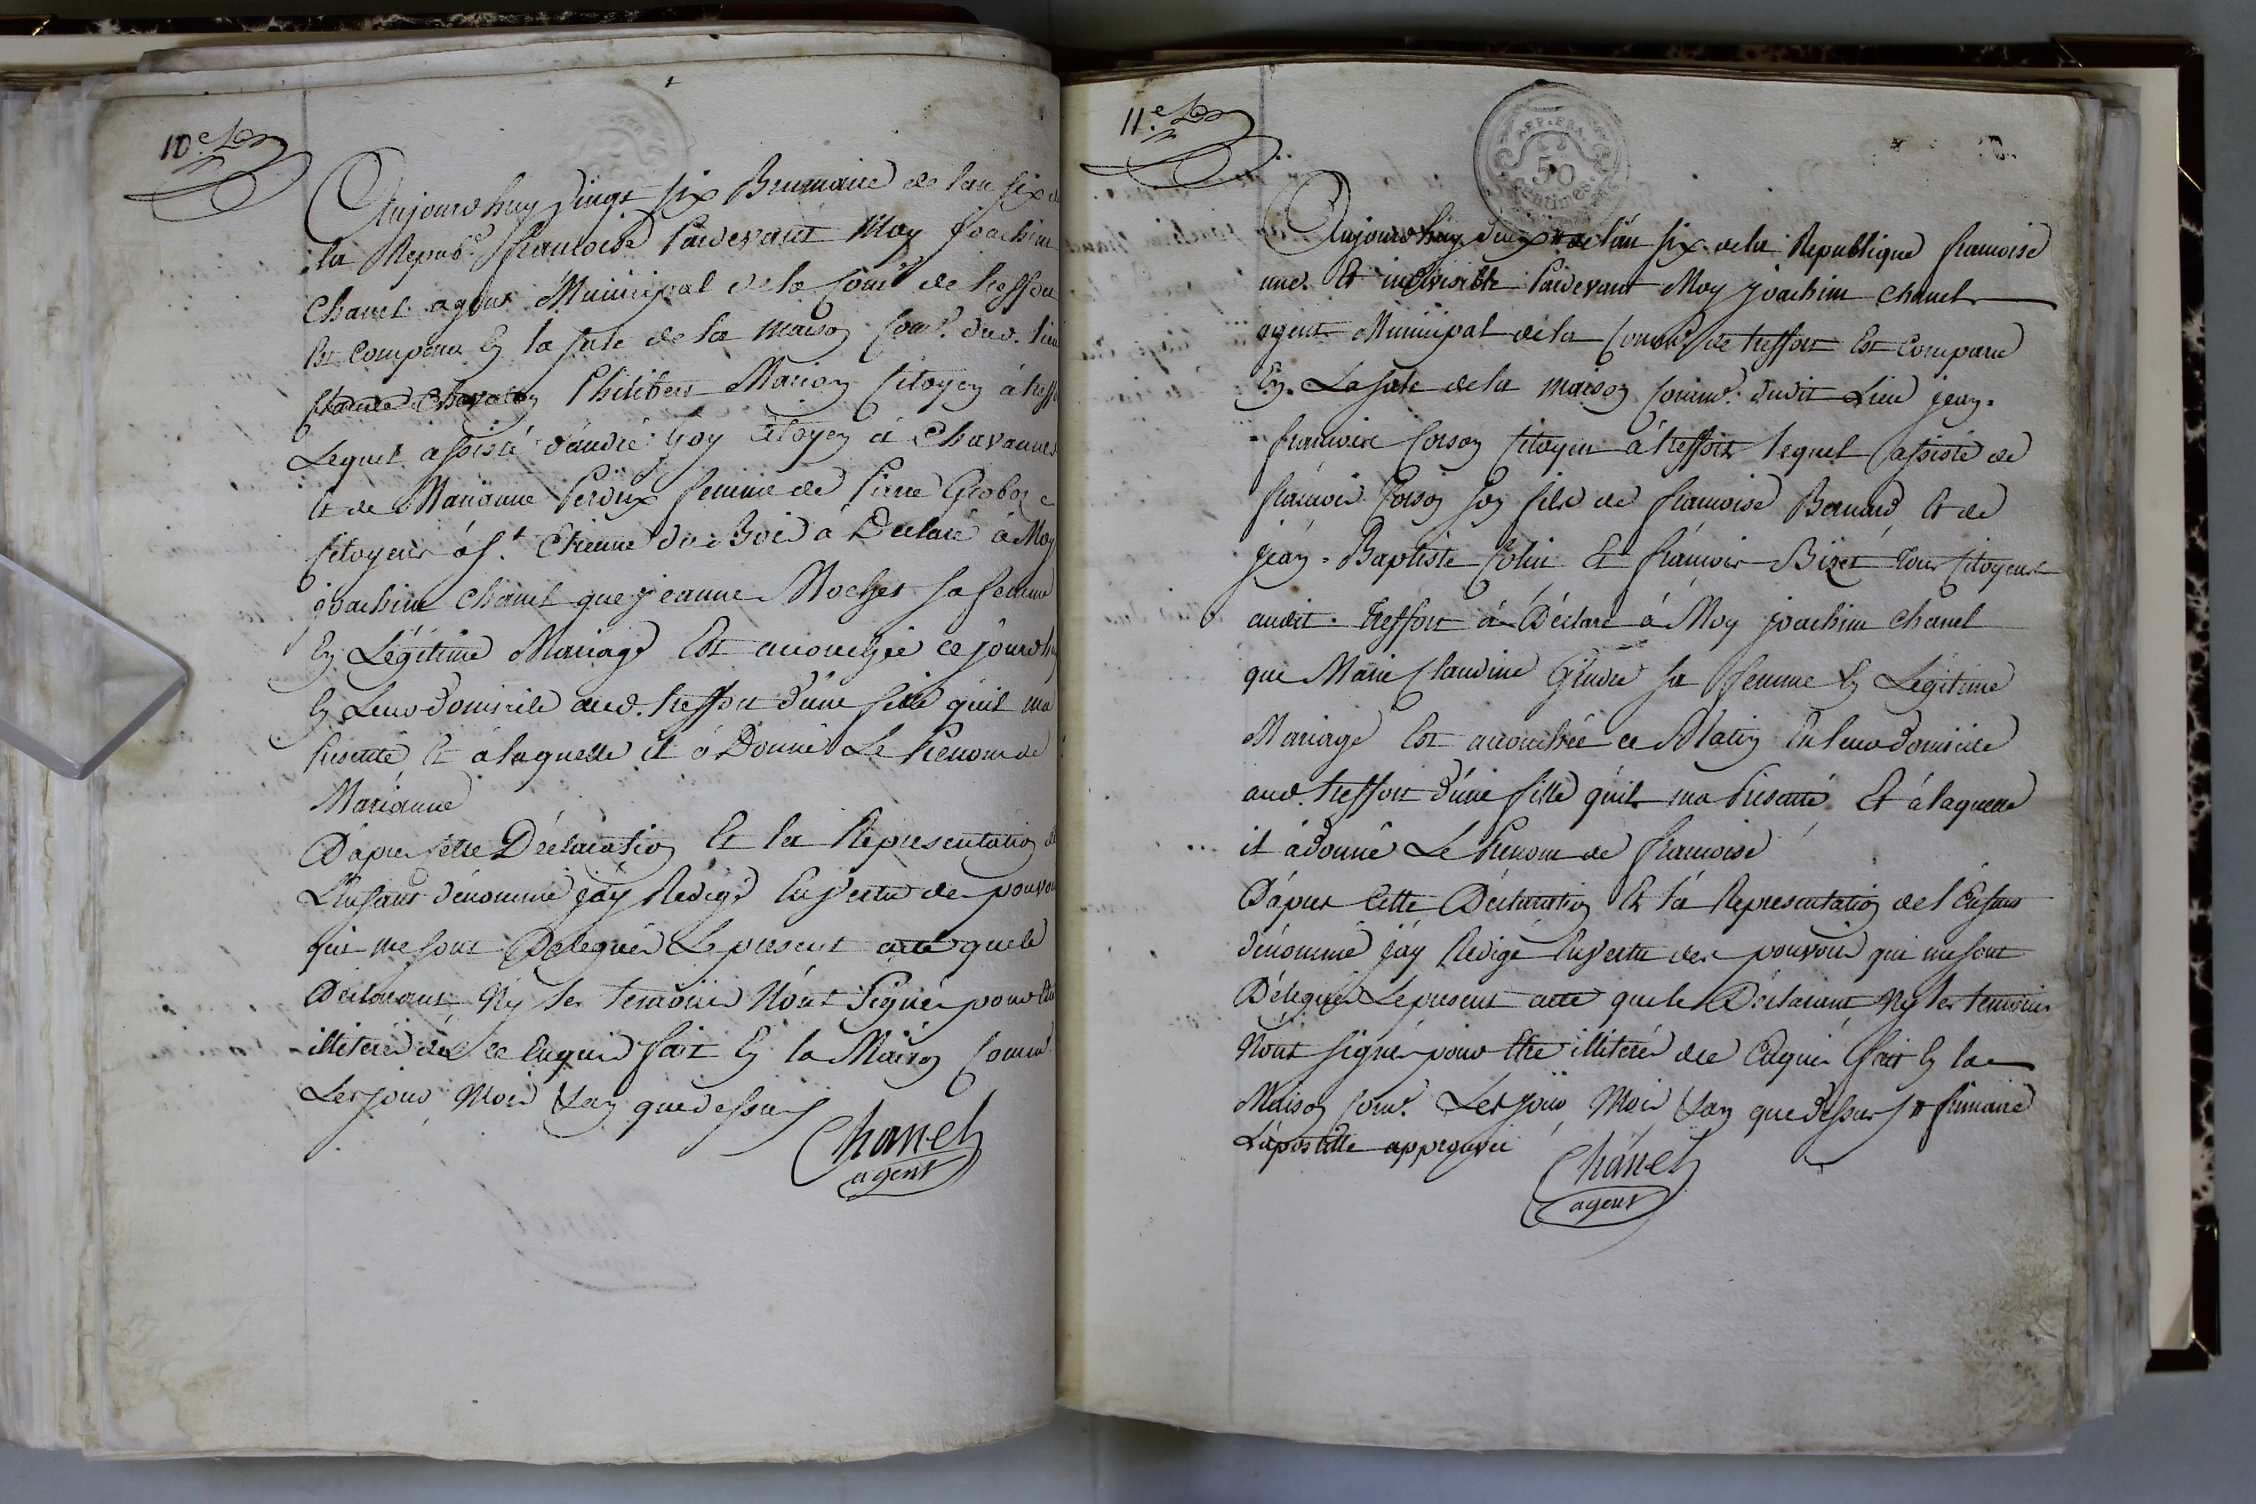 10.e
Aujourdhuy Vingt six Brumaire de lan six d
la Repub.e francoise Pardevant Moy Joachim
Chanel agent Municipal de la Com.e de treffort
Est comparu En la sale de la maison Com.e dud. lieu
Philibert Marion Citoyen á treff
Lequel assisté d'andré Goy Citoyen á Chavannes
Et de Marianne Perdrix femme de Pierre Grobon
Citoyens á S.t Etienne du Bois a Declaré á Moy
joachim Chanel que jeanne Mochet sa femme
En Légitime Mariage Est accouchée ce jourdhuy
En Leur domicile aud. treffort d'une fille qu'il ma
Presenté Et á laquelle il á Donné Le Prenom de
Marianne
D'apres cette Déclaration Et la Representation de
L'Enfant dénommé jáy Redigé En Vertu des pouvoirs
qui me sont Delegués Le present acte que le
Déclarant, Ny les temoins N'ont Signés pour Etre
illiterés de ce Enquis fait En la Maison Comm.
Les jour, Mois & an que dessus
Chanel
agent
11.e
REP. FRA.
50
centimes
Aujourdhuy Deux # de l'an six de la Republique francoise
une Et indivisible Pardevant Moy joachim Chanel
agent Municipal de la Comm.e de treffort Est Comparu
En La sale de la maison Comm.e dudit Lieu jean-
francoise Corson Citoyen á treffort lequel assisté de
francois Corson son fils de francoise Bernard, Et de
jean-Baptiste Colin Et francois Bizet tous Citoyens
audit treffort á Déclaré á Moy joachim Chanel
que Marie Claudine sa femme En Légitime
Mariage Est accouchée ce Matin En leur domicile
aud. treffort d'une fille qu'il ma Presenté, Et á laquelle
il á donné Le Prenom de francoise
D'apres Cette Déclaration Et la Representation de l'Enfant
dénommé jáy Redigé En Vertu des pouvoirs qui me sont
Délegués Le present acte que le Déclarant Ny les temoins
N'ont signés pour Etre illiterés de ce Enquis fait En la
Maison Com.e Les jour, Mois & an que dessus # frimaire
L'apostille approuvée
Chanel
agent